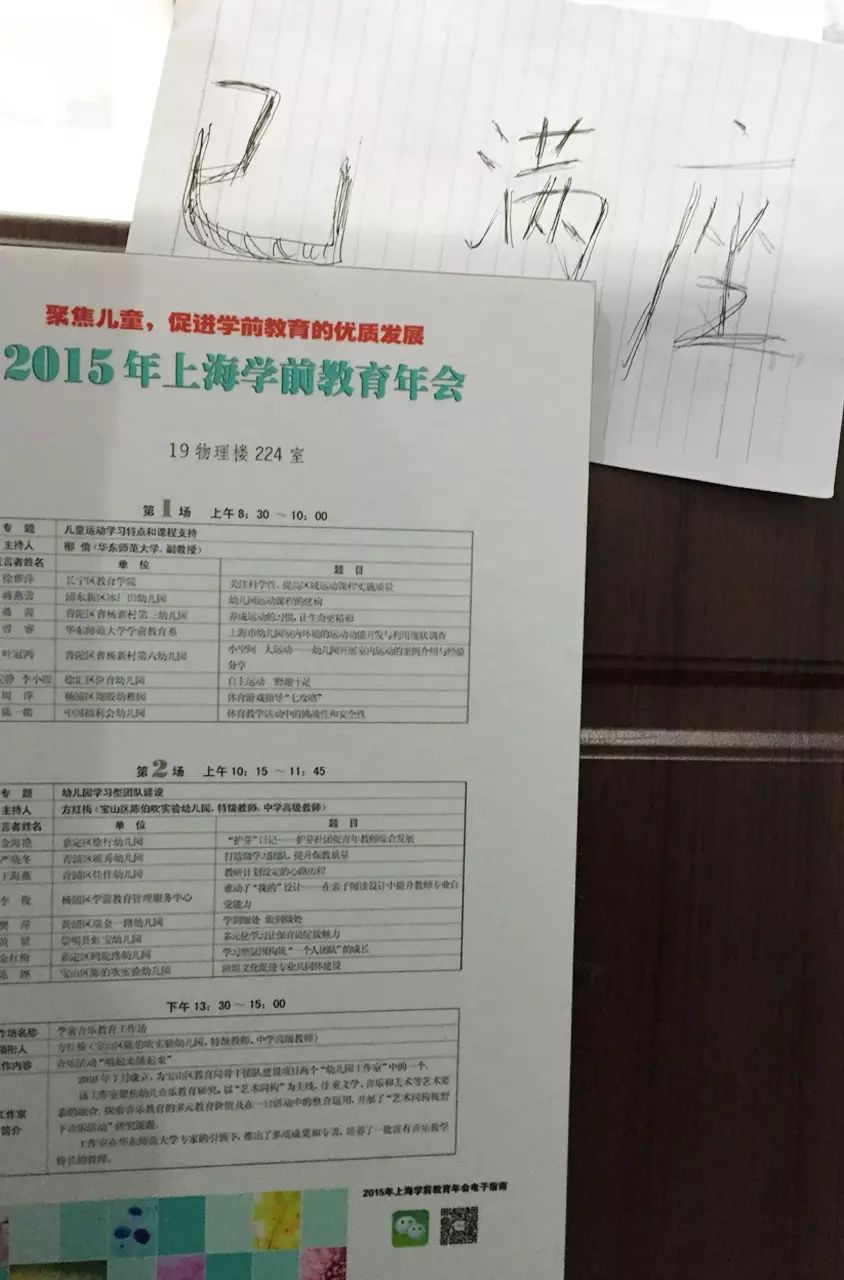 已满座
聚焦儿童，促进学前教育的优质发展
2015年上海学前教育年会
19 物理楼 224 室
第1场 上午8：30～10：00
专 题 儿童运动学习特点和课程支持
主持人 柳 倩（华东师范大学，副教授）
言者姓名 单 位 题 目
长宁区教育学院 关注科学性，提高区域运动课程实施质量
幼儿园运动课程的建构
普陀区曹杨新村第三幼儿园 养成运动的习惯，让生命更精彩
曹 睿 华东师范大学学前教育系 上海市幼儿园室内环境的运动功能开发与利用现状调查
叶冠鸿 普陀区曹杨新村第六幼儿园 小空间 大运动——幼儿园开展室内运动的案例介绍与经验
分享
徐汇区位育幼儿园 自主运动 野趣十足
周 萍 杨浦区翔殷幼稚园 体育游戏指导“七攻略”
陈一 中国福利会幼儿园 体育教学活动中的挑战性和安全性
第2场 上午10：15～11：45
专 题 幼儿园学习型团队建设
主持人 方红梅（宝山区陈伯吹实验幼儿园，特级教师，中学高级教师）
言者姓名 单 位 题 目
金海艳 嘉定区徐行幼儿园 “护芽”日记——护芽社团促青年教师综合发展
严晓冬 青浦区颀秀幼儿园 打造微学习团队，提升保教质量
王海燕 青浦区佳佳幼儿园 教研计划设定的心路历程
李 俊 杨浦区学前教育管理服务中心 谁动了“我的”设计——在亲子阅读设计中提升教师专业自
觉能力
樊 萍 黄浦区瑞金一路幼儿园 学到细处 做到微处
崇明县虹宝幼儿园 多元化学习让保育员绽放魅力
金红梅 嘉定区鹤旋路幼儿园 学习型氛围构筑“一个人团队”的成长
宝山区陈伯吹实验幼儿园 班组文化促进专业共同体建设
下午 13：30～15：00
作坊名称 学前音乐教育工作坊
领衔人 方红梅（宝山区陈伯吹实验幼儿园，特级教师、中学高级教师）
作内容 音乐活动“唱起来跳起来”
工作室
简介
2010年7月成立，为宝山区教育局骨干团队建设项目两个“幼儿园工作室”中的一个。
该工作室聚焦幼儿音乐教育研究，以“艺术同构”为主线，注重文学、音乐和美术等艺术要
素的融合，探索音乐教育的多元教育价值及在一日活动中的整合运用，开展了“艺术同构视野
下音乐活动”研究课题。
工作室在华东师范大学专家的引领下，推出了多项成果和专著，培养了一批富有音乐教学
特长的教师。
2015年上海学前教育年会电子指南